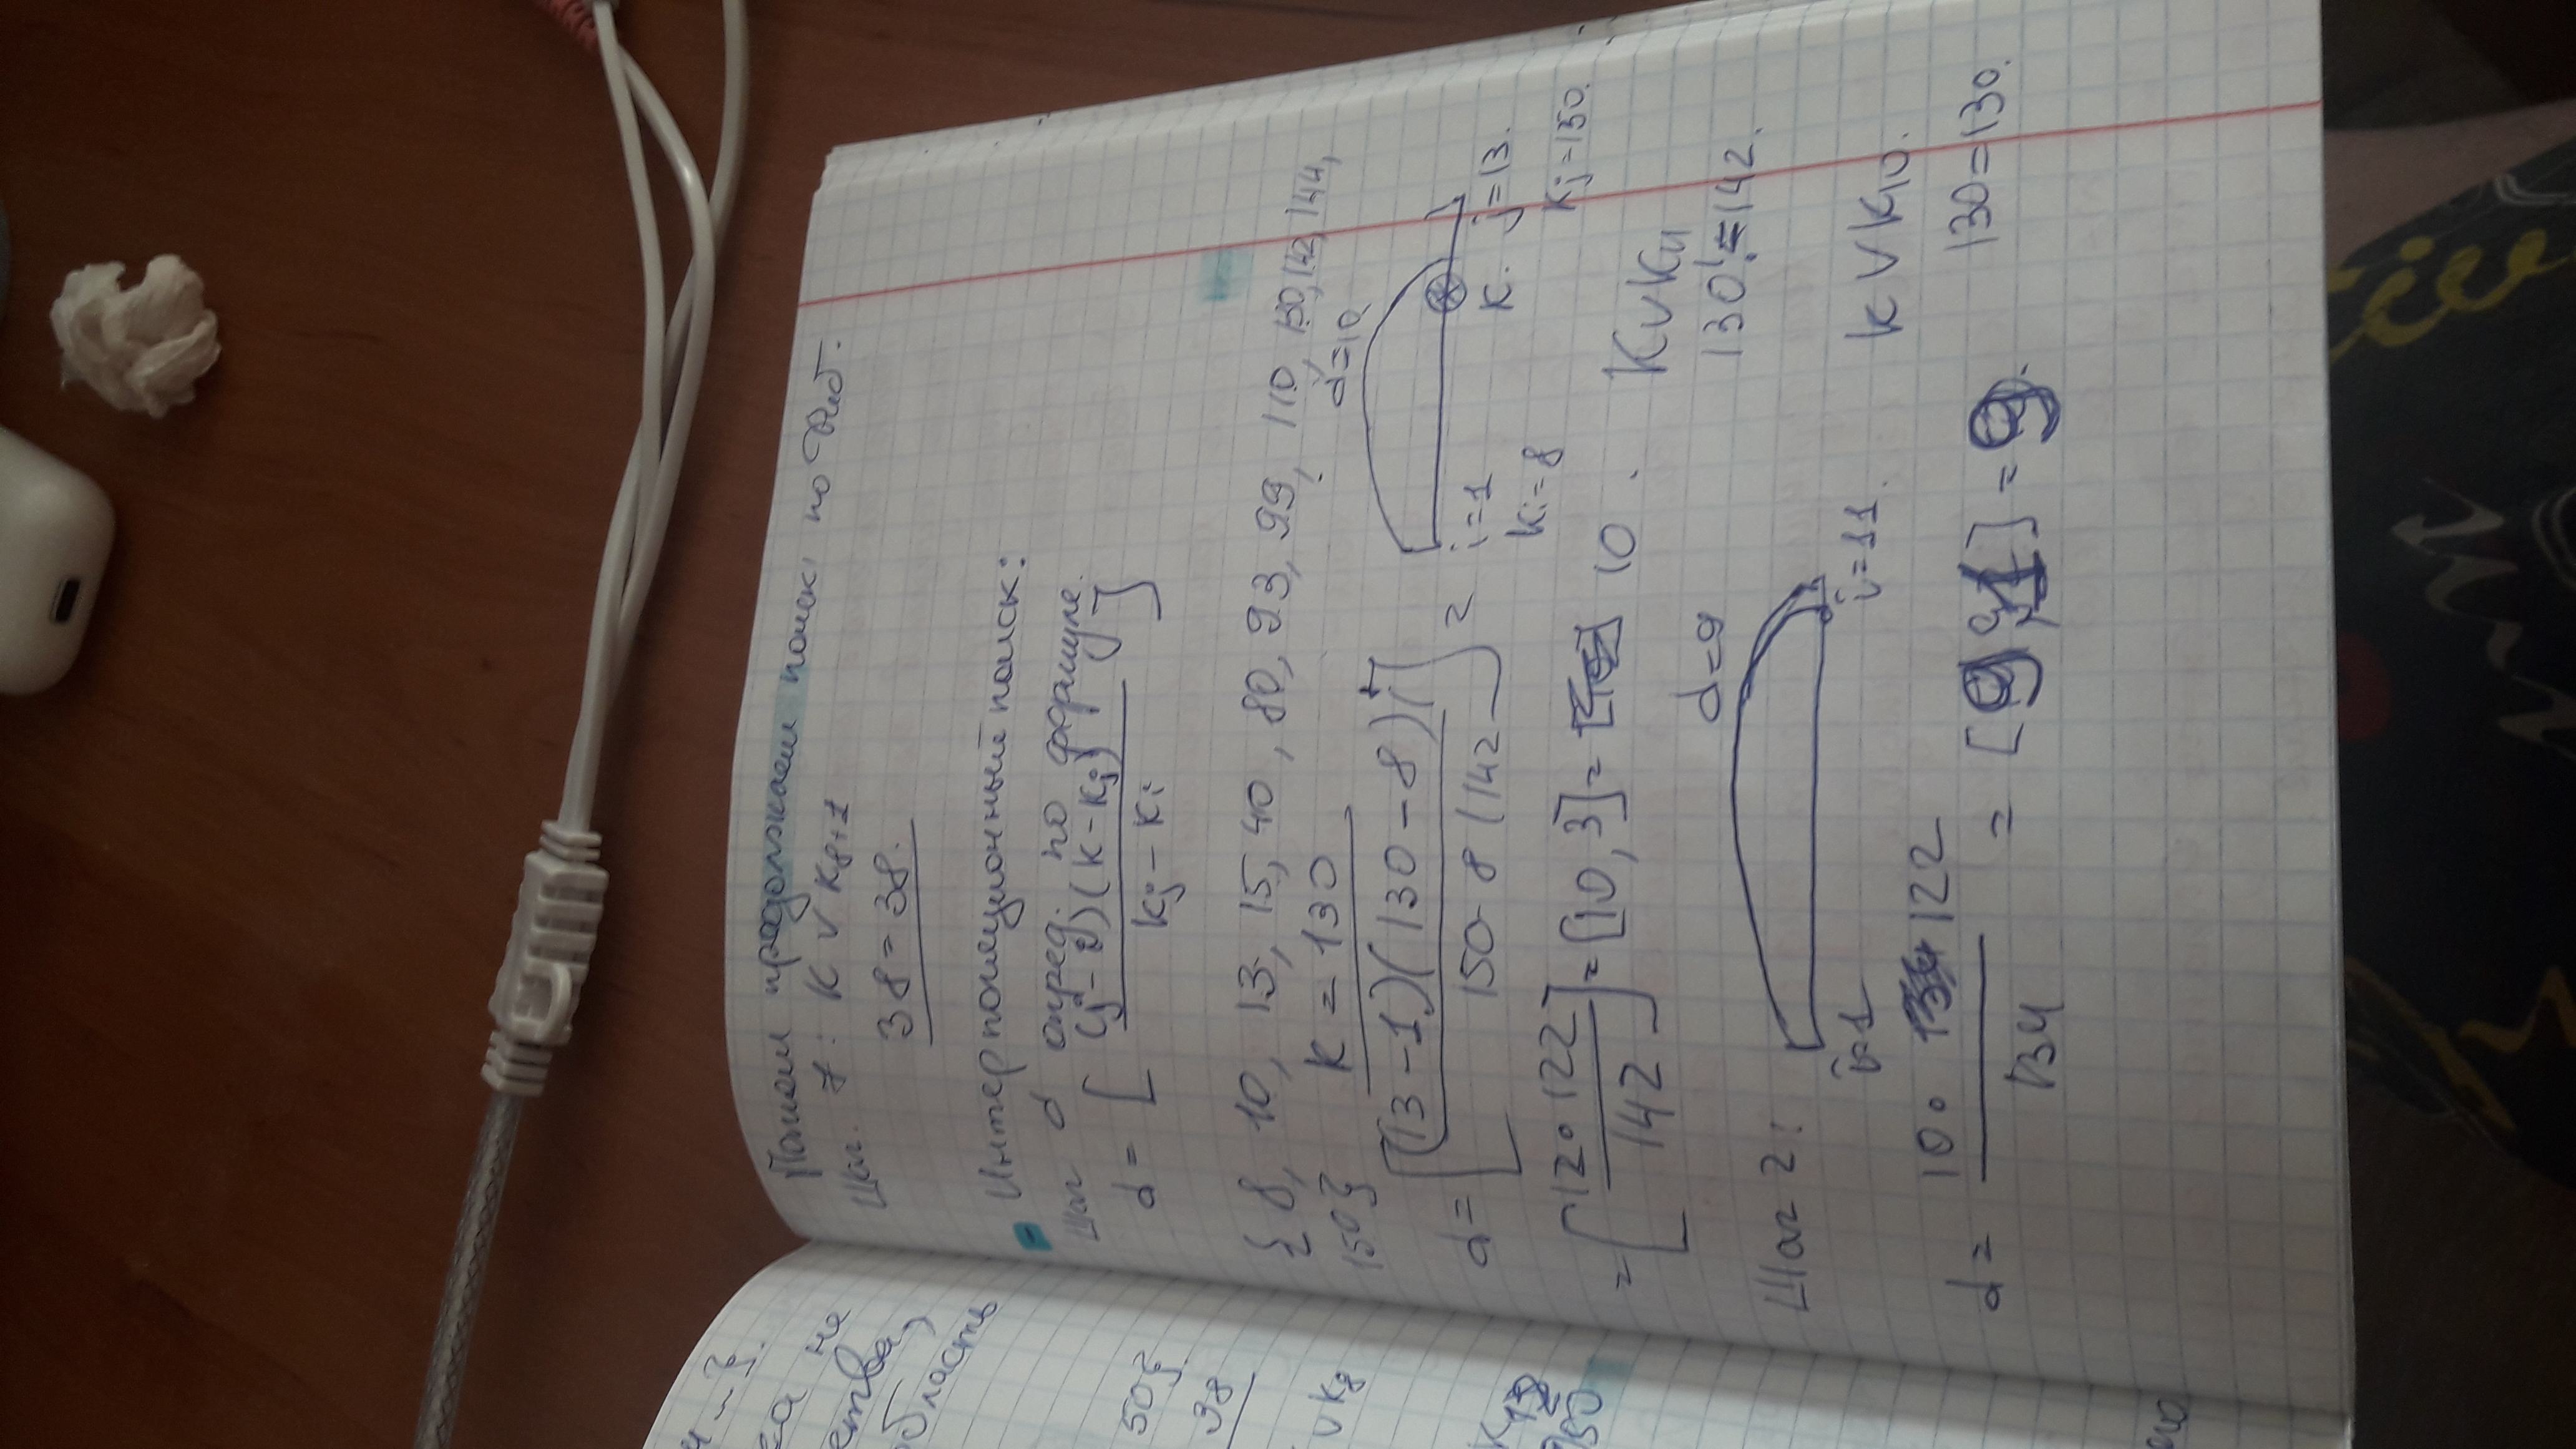 и – }.
са не
ества,
область
50}.
38
v K8
K12
150
Потом продолжаем поиск по Фиб.
Шаг. 7: K v K8+1
38 = 38.
- Интерполяционный поиск:
Шаг d опред. по формуле.
d = [ (j – i)(K – Ki) / Kj – Ki ]
{ 8, 10, 13, 15, 40, 80, 93, 99, 110, 130, 142, 144,
150} K = 130
d=10
d = [ (13 – 1)(130 – 8) / 150 – 8 (142 ] =
i=1 K. j=13.
Ki=8 Kj=150.
= [ 12 · 122 / 142 ] = [10,3] = 10.
K v K11
130 != 142.
Шаг 2: d=9
i=1 i=11.
K v K10.
d = 10 · 122 / 134 = [9,1] = 9.
130=130.